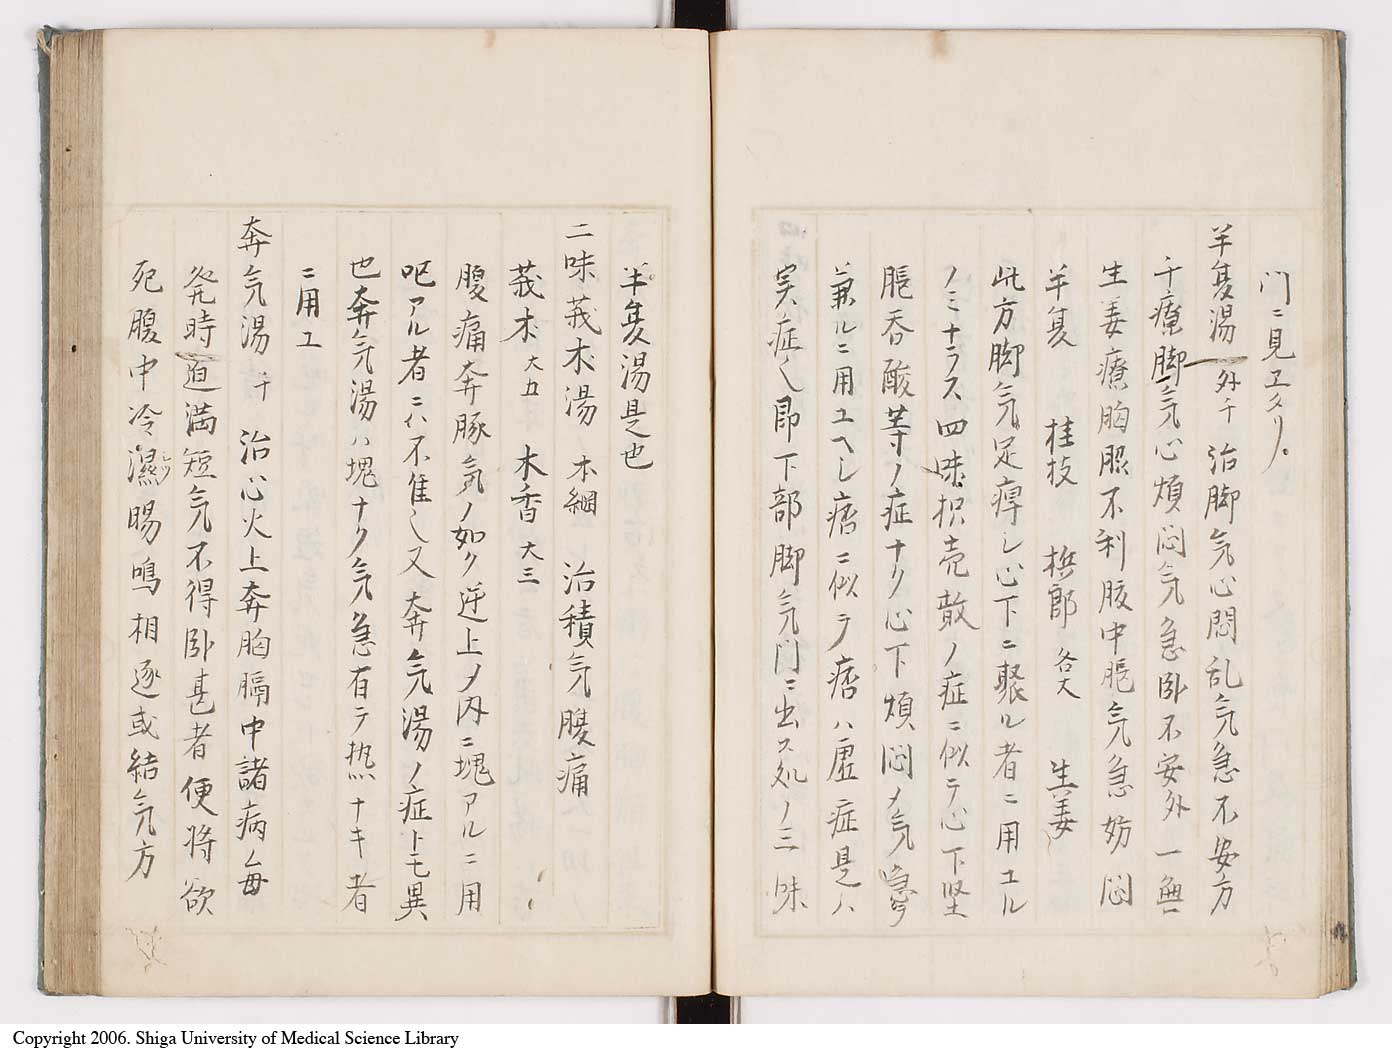 門ニ見エタリ。
半夏湯 外千 治脚気心悶乱気急不安方
千療脚气心煩悶气急卧不安外一無
生姜療胸脹不利腹中脹气急妨悶
半夏 桂枝 梹郎 各大 生姜
此方脚气足痺シ心下ニ聚ル者ニ用ユル
ノミナラス四味枳壳散ノ症ニ似テ心下堅
脹吞酸等ノ症ナリ心下煩悶ノ气急ヲ
兼ルニ用ユヘシ痞ニ似テ痞ハ虚症是ハ
実症也即下部脚气門ニ出ス処ノ三味
半夏湯是也
二味莪朮湯 本綱 治積气腹痛
莪朮 大五 木香 大三
腹痛奔豚気ノ如ク逆上ヲ内ニ塊アルニ用
呕アル者ニハ不佳也又奔气湯ノ症トモ異
也奔气湯ハ塊ナク气急有テ热ナキ者
ニ用ユ
奔气湯 千 治心火上奔胸膈中諸病毎
発時迫満短气不得卧甚者便將欲
死腹中冷濕シツ腸鳴相逐或結气方
Copyright 2006. Shiga University of Medical Science Library